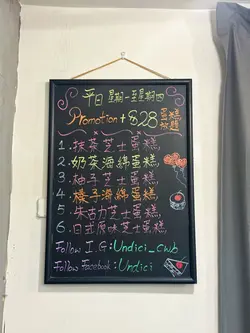 平日 星期一至星期四
Promotion + $28 蛋糕放題
1. 抹茶芝士蛋糕
2. 奶茶海綿蛋糕
3. 柚子芝士蛋糕
4. 橙子海綿蛋糕
5. 朱古力芝士蛋糕
6. 日式原味芝士蛋糕
Follow I.G: Undici_cwb
Follow Facebook: Undici